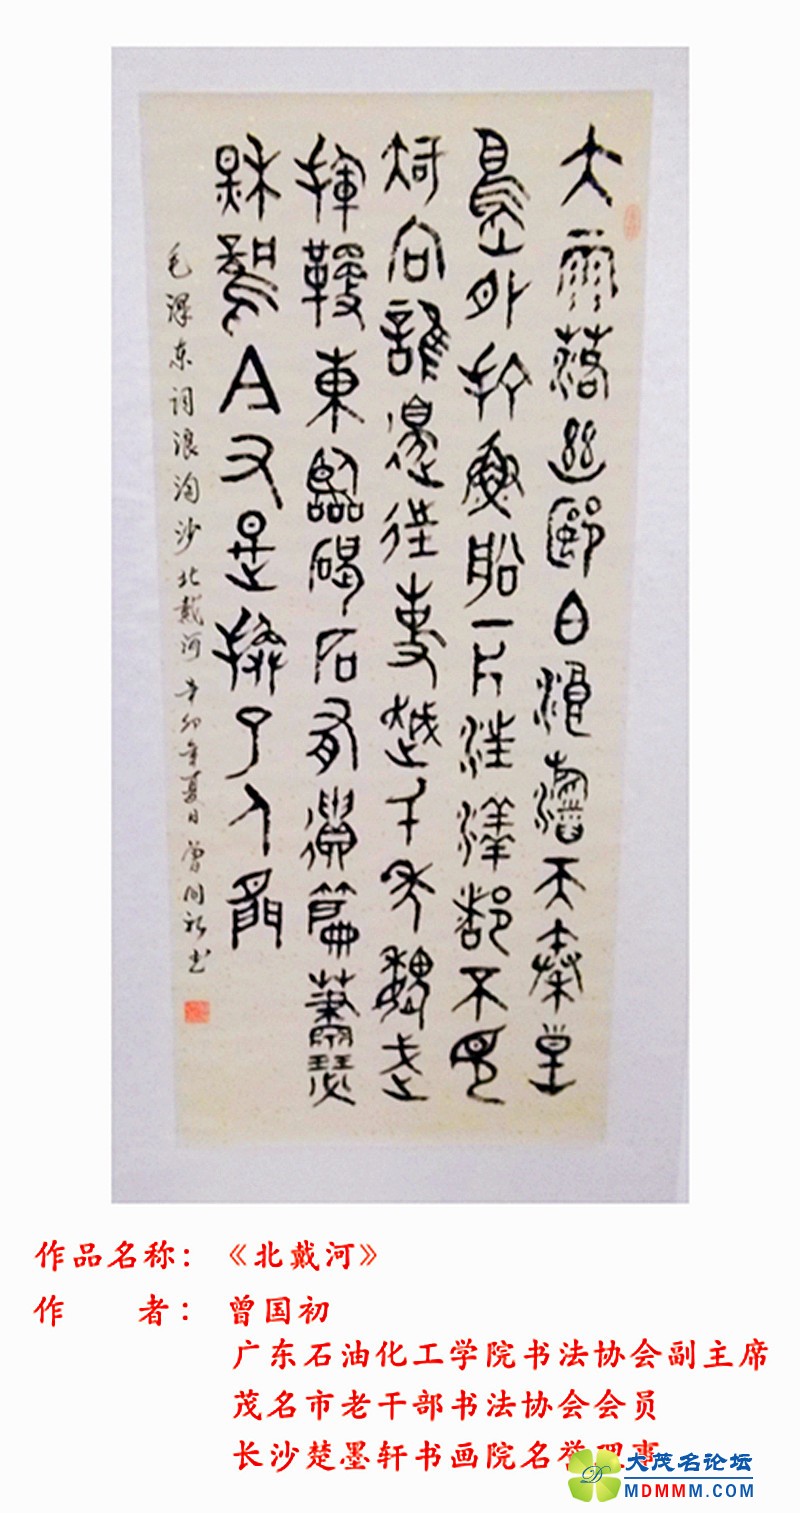 大雨落幽郾白浪滔天秦皇
島外打魚船一片汪洋都不見
知向誰邊往事越千年魏武
揮鞭東臨碣石有遺篇蕭瑟
秋風今又是換了人間
毛泽东词浪淘沙北戴河辛卯年夏日曾国初书
作品名称：《北戴河》
作 者：曾国初
广东石油化工学院书法协会副主席
茂名市老干部书法协会会员
长沙楚墨轩书画院名誉理事
大茂名论坛
MDMMM.COM